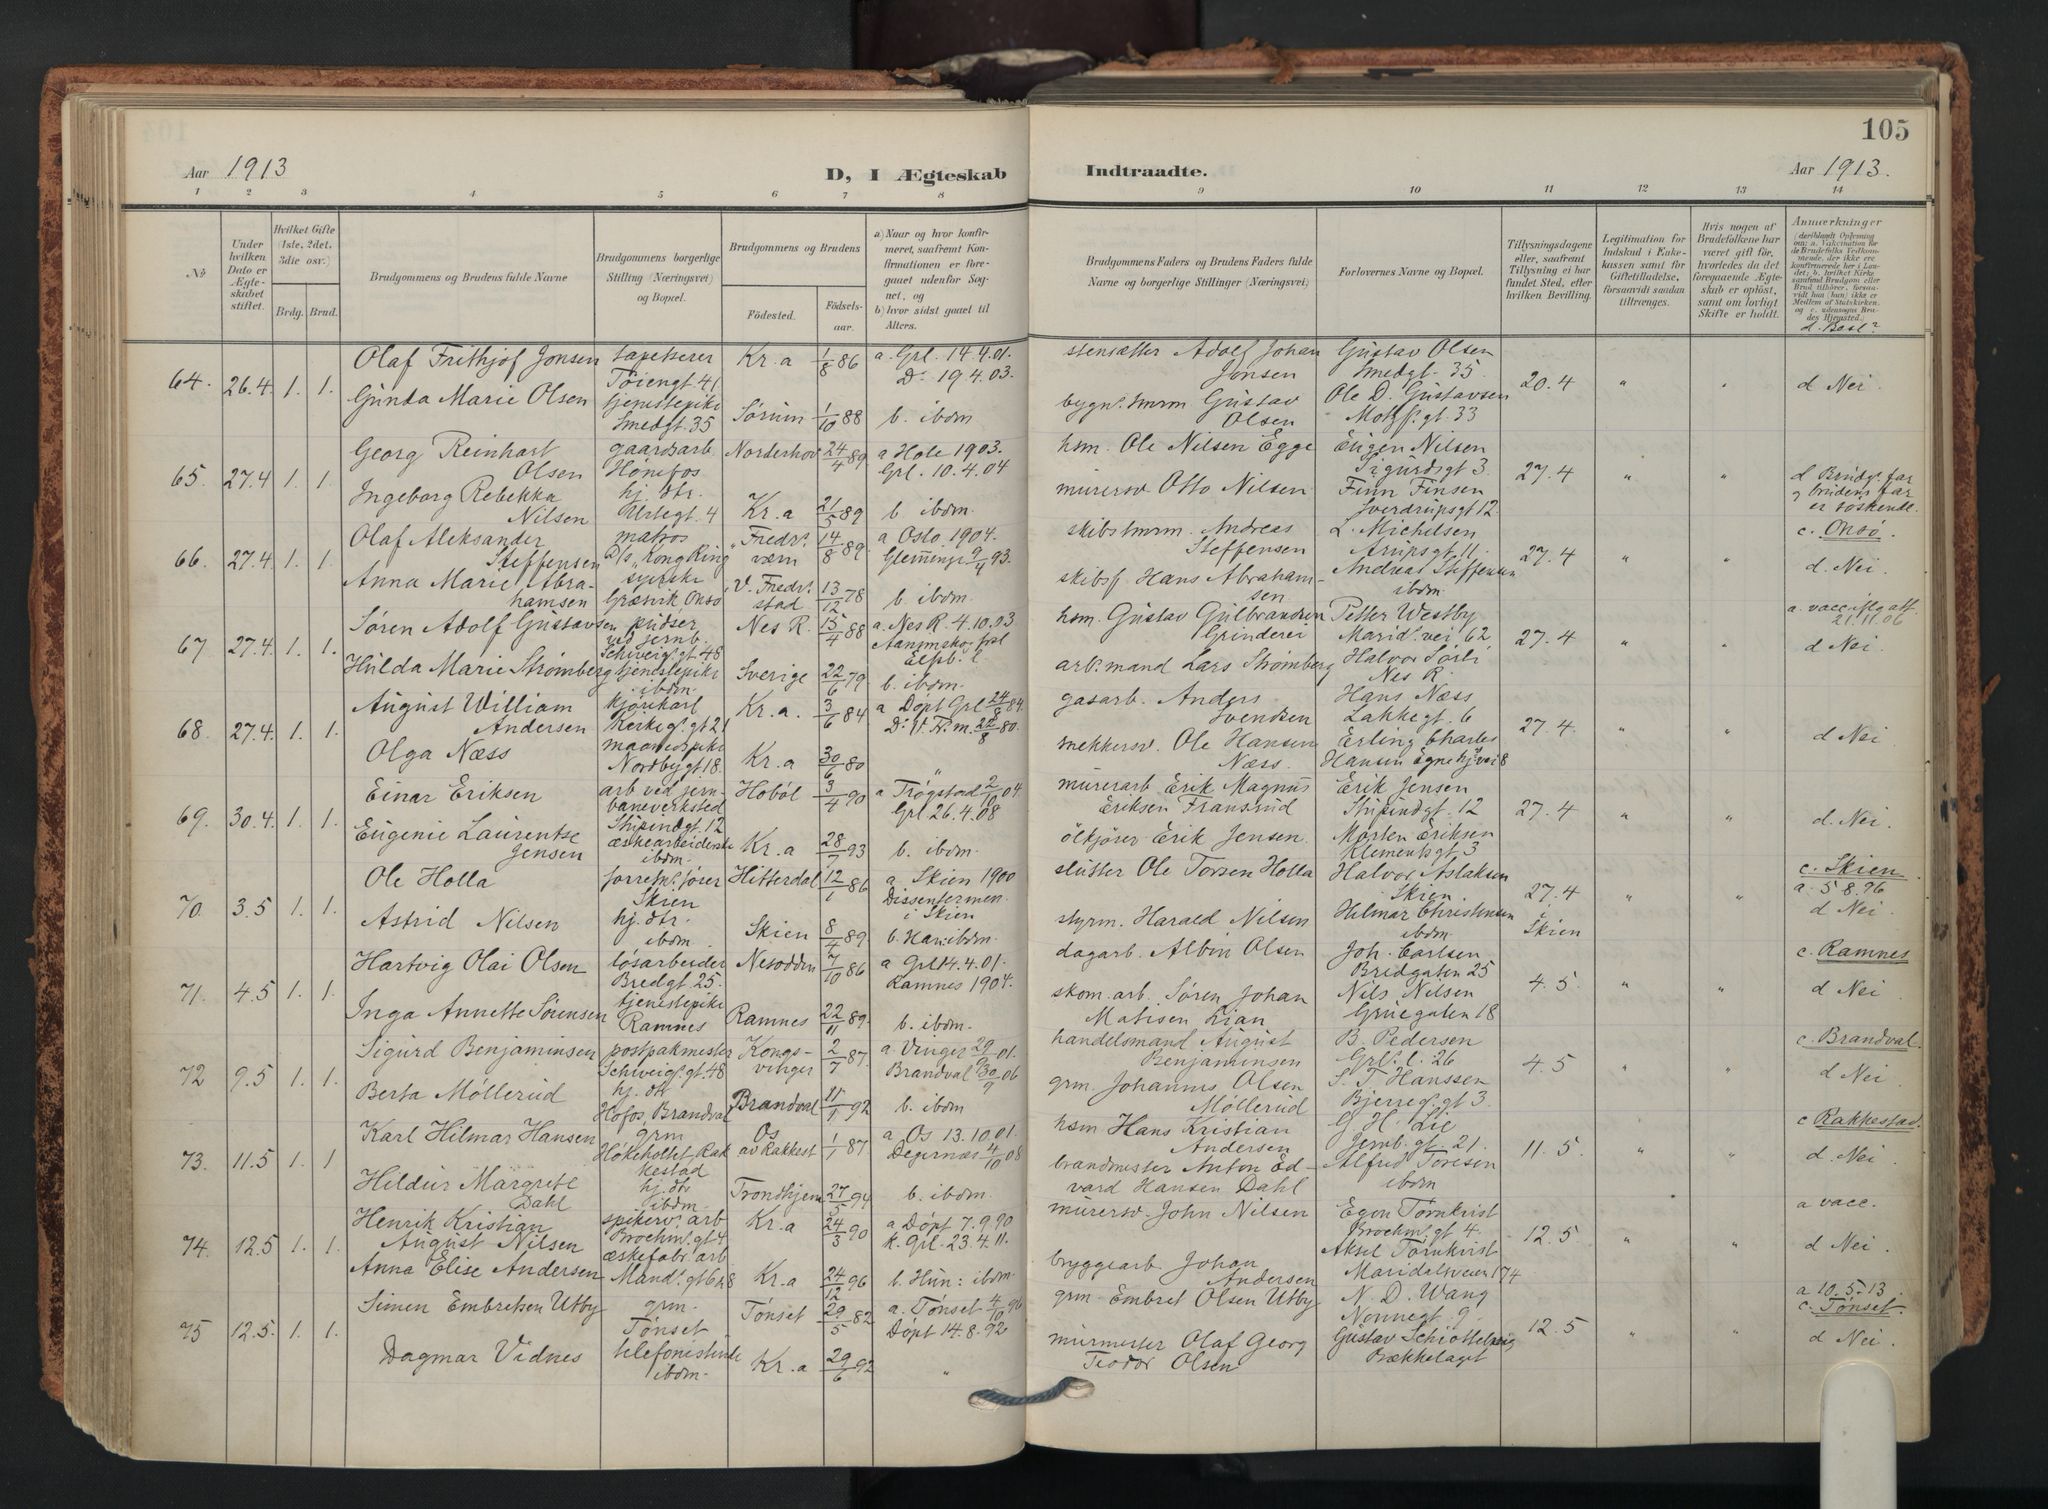 105
Aar 1913
D, I Ægteskab Indtraadte.
Aar 1913.
1 2 3 4 5 6 7 8 9 10 11 12 13 14
No
Under hvilken Dato er Ægteskabet stiftet.
Hvilket Gifte (1ste, 2det, 3die osv.)
Brdg. Brud.
Brudgommens og Brudens fulde Navne
Brudgommens borgerlige Stilling (Næringsvei) og Bopæl.
Brudgommens og Brudens
Födested.
Födselsaar.
a) Naar og hvor konfirmeret, saafremt Konfirmationen er foregaaet udenfor Sognet, og
b) hvor sidst gaaet til Alters.
Brudgommens Faders og Brudens Faders fulde Navne og borgerlige Stillinger (Næringsvei)
Forlovernes Navne og Bopæl.
Tillysningsdagene eller, saafremt Tillysning ei har fundet Sted, efter hvilken Bevilling.
Legitimation for Indskud i Enkekassen samt for Giftetilladelse, forsaavidt saadan tiltrænges.
Hvis nogen af Brudefolkene har været gift för, hvorledes da det foregaaende Ægteskab er oplöst, samt om lovligt Skifte er holdt.
Anmærkninger
64. 26.4 1. 1. Olaf Frithjof Jonsen tapetserer Tøiengt 41 Kr.a 1/8 86 a. Grl. 14.4.01. D: 19.4.03. stensætter Adolf Johan Jonsen Gustav Olsen Smedgt. 35. 20.4 " " d Nei.
Gunda Marie Olsen tjenestepike Smedgt. 35 Sørum 1/10 88 b. ibdm bygn. tmrm Gustav Olsen Ole D. Gustavsen Motzf. gt. 33
65. 27.4 1. 1. Georg Reinhart Olsen gaardsarb. Hønefos Norderhov 24/4 89 a Hole 1903. Grl. 10.4.04 hsm. Ole Nilsen Egge Eugen Nilsen Sigurdsgt 3 27.4 " " d Brudg. far og brudens far er søskende.
Ingeborg Rebekka Nilsen hj. dtr. Urtegt. 4 Kr.a 21/5 89 b. ibdm murersv Otto Nilsen Finn Finsen Sverdrupsgt 12.
66. 27.4. 1. 1. Olaf Aleksander Steffensen matros D/s "Kong Ring Fredr. værn 14/8 89 a Oslo 1904. Glemminge 9/4 93. skibstmrm. Andreas Steffensen L. Michelsen Arupsgt 11. 27.4 " " c. Onsø d Nei.
Anna Marie Abrahamsen Græsvik, Onsø V. Fredr. stad 13/12 78 b. ibdm. skibsf. Hans Abrahamsen. Andreas Steffensen ibdm.
67. 27.4. 1. 1. Søren Adolf Gustavsen pudser ved jernb. Schweig. gt. 48 Nes R. 15/4 88 a. Nes R. 4.10.03. hsm. Gustav Gulbrandsen Grinderei Petter Westby Marid. vei 62 27.4 " " a. vacc. iflg att 21.11.06 d Nei.
Hulda Marie Strømberg tjenestepike ibdm. Sverige 22/6 79 b. ibdm. arb. mand Lars Strømberg Halvor Sørli Nes R.
68. 27.4. 1. 1. August William Andersen kjørekarl Kirkeg. gt 21 Kr.a. 3/6 84 a Døpt Grl 24/8 84. D: V. Ak. m. 22/8 80. gasarb. Anders Svendsen Hans Næss Lakkegt. 6 27.4 " " d Nei
Olga Næss Nordbygt 18. Kr.a 30/6 80 " snekkersv. Ole Hansen Næss. Erling Charles Hansen Egnehjvei 8
69. 30.4. 1. 1. Einar Eriksen arb ved jernbaneverksted Stupindgt. 12 Høbøl 3/4 90 a Trøgstad 2/10 04. Grl 26.4.08 murerarb Erik Magnus Eriksen Fransrud Erik Jensen Stupindgt. 12 27.4 " " d. Nei.
Eugenie Laurentse Jensen æskearbeiderske ibdm. Kr.a 28/7 93 b. ibdm. ølkjører Erik Jensen. Morten Eriksen Klementsgt 3
70. 3.5 1. 1. Ole Holla Skien Hitterdal 12/1 86 a. Skien 1900 Dissentermen. i Skien slutter Ole Torsen Holla Halvor Aslaksen Skien. 27.4 i Skien " " c. Skien a. 5.8.96 d Nei
Astrid Nilsen hj. dtr. ibdm. Skien 8/4 89. b. Han: ibdm. styrm. Harald Nilsen Hilmar Christensen ibdm.
71. 4.5 1. 1. Hartvig Olai Olsen løsarbeider Bredgt. 25. Nesodden 7/10 86 a Grl 14.4.01. Ramnes 1904. dagarb. Albin Olsen Joh. Carlsen Bredgaten 25 4.5. " " c. Ramnes d Nei
Inga Annette Sørensen tjenestepike Ramnes Ramnes 22/11 89. b. ibdm. skom. arb. Søren Johan Matisen Lian Nils Nilsen Grüegaten 18
72 9.5 1. 1. Sigurd Benjaminsen postpakmester Schweig. gt. 48 Kongsvinger 2/7 87 a. Vinger 29/9 01. Brandval 30/9 06 handelsmand August Benjaminsen B. Pedersen Grl. l. 26 4.5 " " c. Brandval. d Nei
Berta Møllerud hj. dtr Hofos, Brandval Brandval 11/1 92 b. ibdm grm. Johannes Olsen Møllerud S. T. Hanssen Bjerreg. gt 3.
73. 11.5 1. 1 Karl Hilmar Hansen grm Høkeholtet, Rakkestad Os av Rakkest 1/1 87. a. Os 13.10.01. Degernæs 4/10 08 hsm Hans Kristian Andersen G. H. Lie Jernb. gt. 21. 11.5. " " c Rakkestad. d. Nei
Hildur Margrete Dahl hj. dtr ibdm. Trondhjem 27/5 94 b. ibdm. brandmester Anton Edvard Hansen Dahl Alfred Toresen ibdm
74. 12.5 1. 1. Henrik Kristian August Nilsen spikerv. arb Brochm. gt 4 Kr.a 24/3 90 a. Døpt 7.9.90 k. Grl. 23.4.11. murersv. John Nilsen Egon Törnkvist Brochm. gt 4. 12.5 " " a vacc. d Nei.
Anna Elise Andersen æskefabr. arb Mand. gt 6 Kr.a 24/12 96 b. Hun: ibdm. byggearb Johan Andersen Aksel Törnkvist Maridalsveien 174
75 12.5. 1. 1. Simen Embretsen Utby grm. Tønset Tønset 29/5 82 a. Tønset 4/10 96 Døpt 14.8.92 grm. Embret Olsen Utby N. D. Wang Nonnegt. 9. 12.5 " " a 10.5.13 c. Tønset. d Nei.
Dagmar Vidnes telefonistinde ibdm. Kr.a 29/6 92 " murmester Olaf Georg Teodor Olsen Gustav Bækkelaget